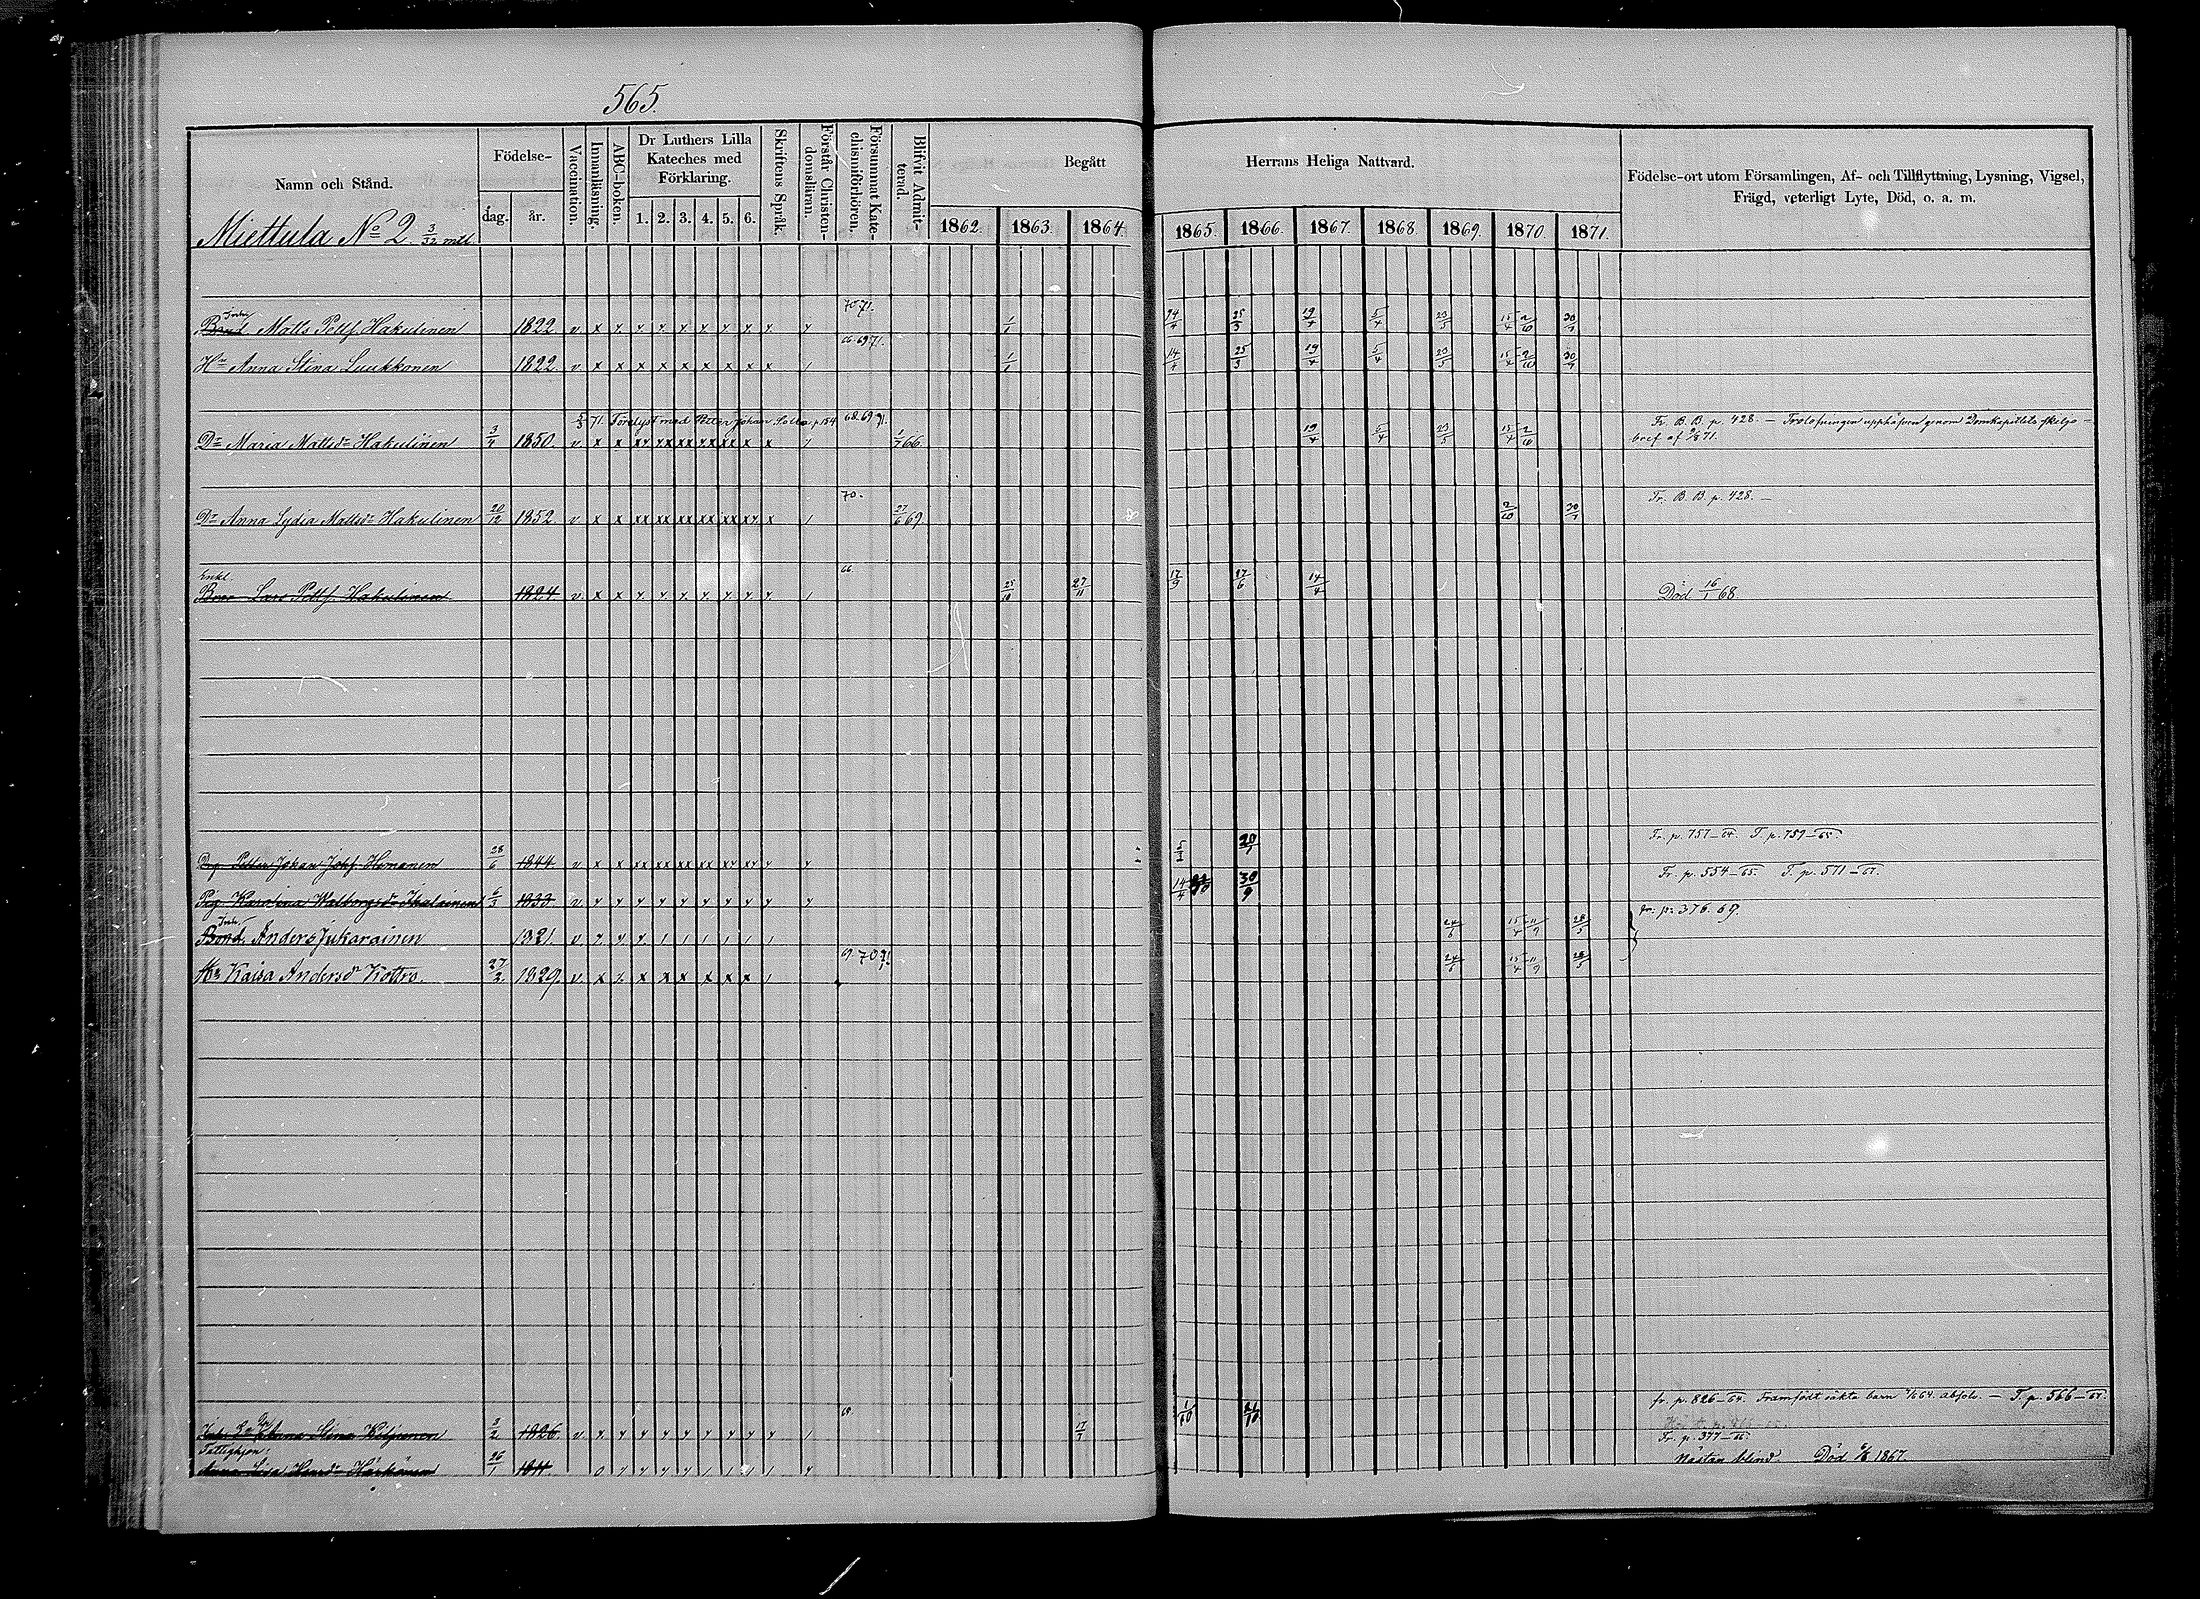 565.
Namn och Stånd.
Miettula No 2. 3/32 mtl.
Födelse-
dag. år.
Vaccination.
Innanläsning.
ABC-boken.
Dr Luthers Lilla
Kateches med
Förklaring.
1. 2. 3. 4. 5. 6.
Skriftens Språk.
Förstår Christen-
domsläran.
Försummat Kate-
chismiförhören.
Blifvit Admit-
terad.
Begått Herrans Heliga Nattvard.
1862. 1863. 1864. 1865. 1866. 1867. 1868. 1869. 1870. 1871.
Födelse-ort utom Församlingen, Af- och Tillflyttning, Lysning, Vigsel,
Frägd, veterligt Lyte, Död, o. a. m.
70. 71.
Inh.
Bond Matts Pettf. Hakulinen 1822 v x y y y y y y y y y 1/1 14/4 25/3 19/4 5/4 23/5 15/4 2/10 30/1
66. 69. 71.
Hu Anna Stina Luukkonen 1822 v x x x x x x x x x 1/1 14/4 25/3 19/4 5/4 23/5 15/4 2/10 30/1
5/3 71. Förelyst med Petter Johan p. 134 68. 69. 71. Fr. B. B. p. 428. — Trolofningen upphäfven genom Domkapitlets skiljo-
Dr Maria Mattsdr Hakulinen 1850. v x x xy xx xx yx xx x x 1/7 66. 19/4 5/4 23/5 15/4 2/10 bref af 71.
70. Fr. B. B. p. 428. —
Dr Anna Lydia Mattsdr Hakulinen 20/12 1852 v x x xx xx xx xx xx xy x 27/6 69. 2/10 30/1
Enkl. 66.
Bror Lars Pettf. Hakulinen 1824 v x x y y y y y y y 25/10 27/11 17/9 17/6 14/4 Död 16/1 68.
Fr. p. 757-64. T. p. 759-65.
Drg Petter Johan Johf. Himanen 28/6 1844 v x x xx xx xx xx xy xy y y
Fr. p. 554-65. T. p. 571-67.
Pig. Karolina Walborgsdr Ikalainen 6/3 1833 v y y y y y y y y y y 14/4 30/9
Inh. fr. p. 376. 69.
Bond. Anders Jukarainen 1821. v y y y 24/6 15/4 11/9 28/5
9. 70. 71
Hu Kaisa Andersdr Kottro. 27/2 1829. v x x x x x x x x 24/6 15/4 11/9 28/5
fr. p. 826-64. Framfödt oäkta barn 64. Absolv. — T. p. 566-67.
Anna Stina Kiljunen 2/2 1826. v y y y y y y y y y 17/7 1/10 21/10
Fr. p. 377-66.
Fattighjon:
Anna Lisa Henrdr Härkönen 26/1 1811. Nästan blind. Död 1867.